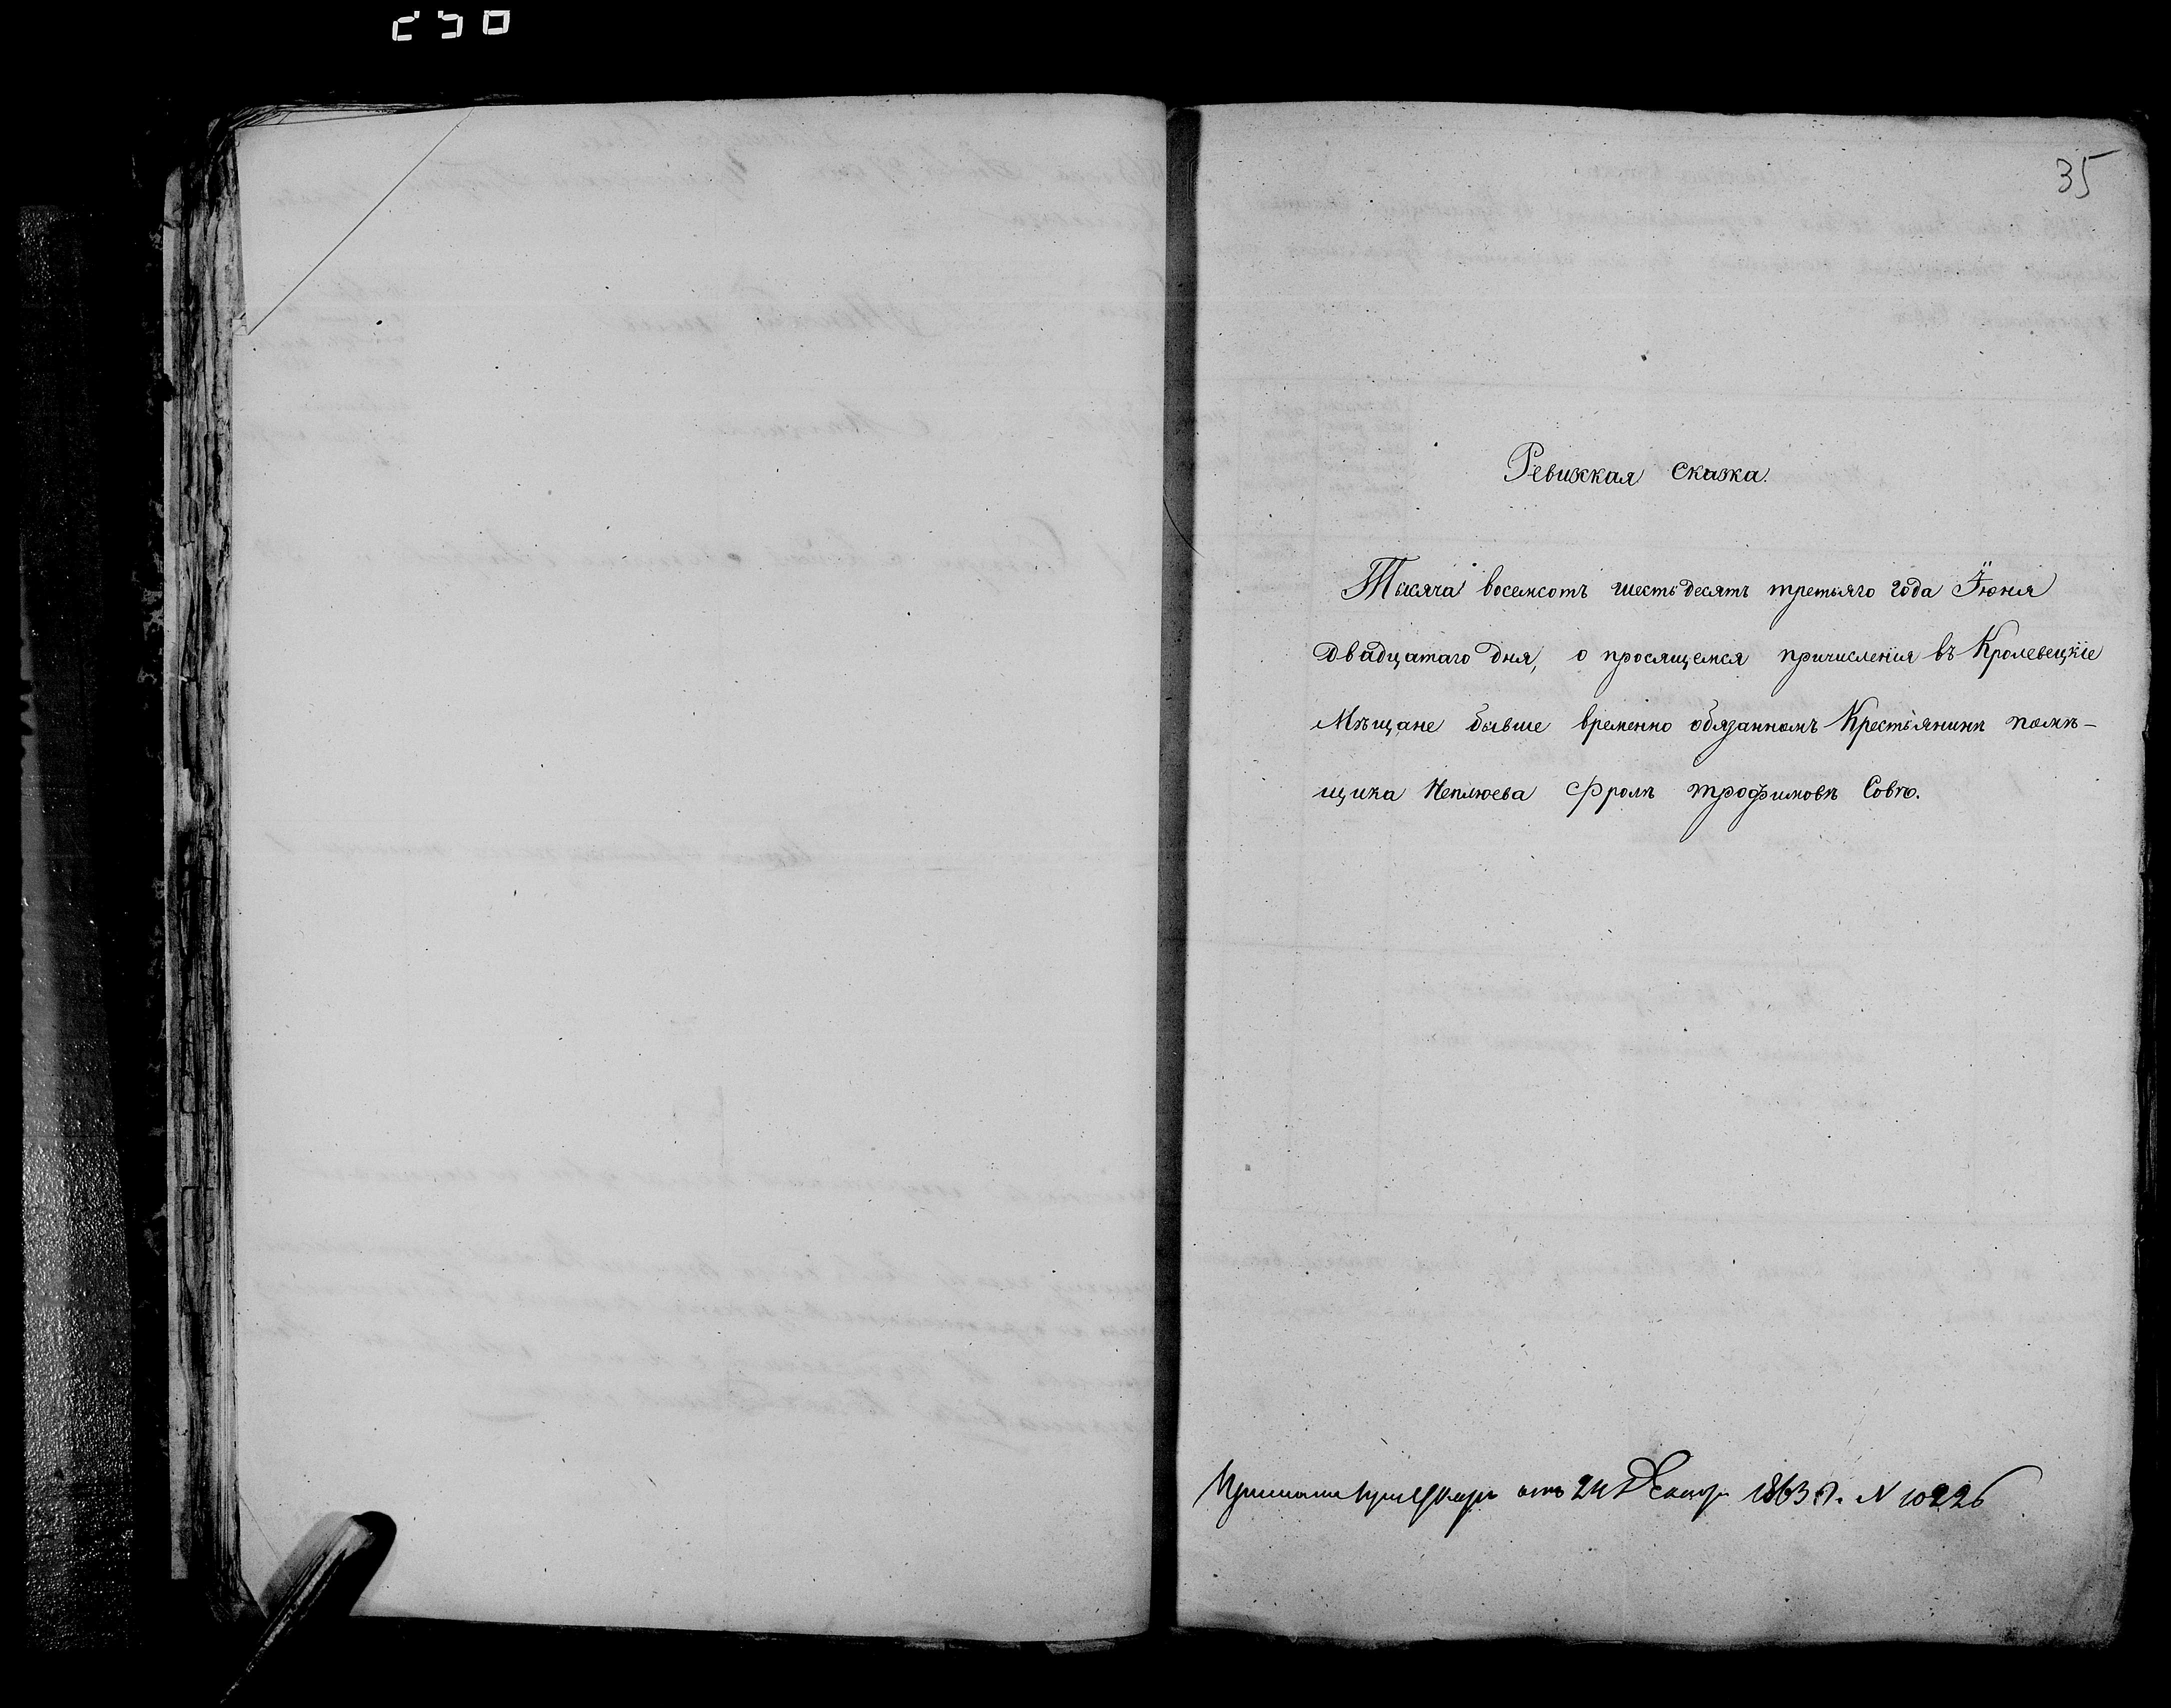 35
Ревизская сказка.
Тысяча восемсотъ шестьдесятъ третьяго года Іюня
двадцатаго дня, о просящемся причисленія въ Кролевецкіе
Мѣщане бывше временно обязанномъ Крестьянинѣ помѣ-
щика Неплюева Фролѣ Трофимовѣ Совѣ.
отъ 24 1863 г. N 10226